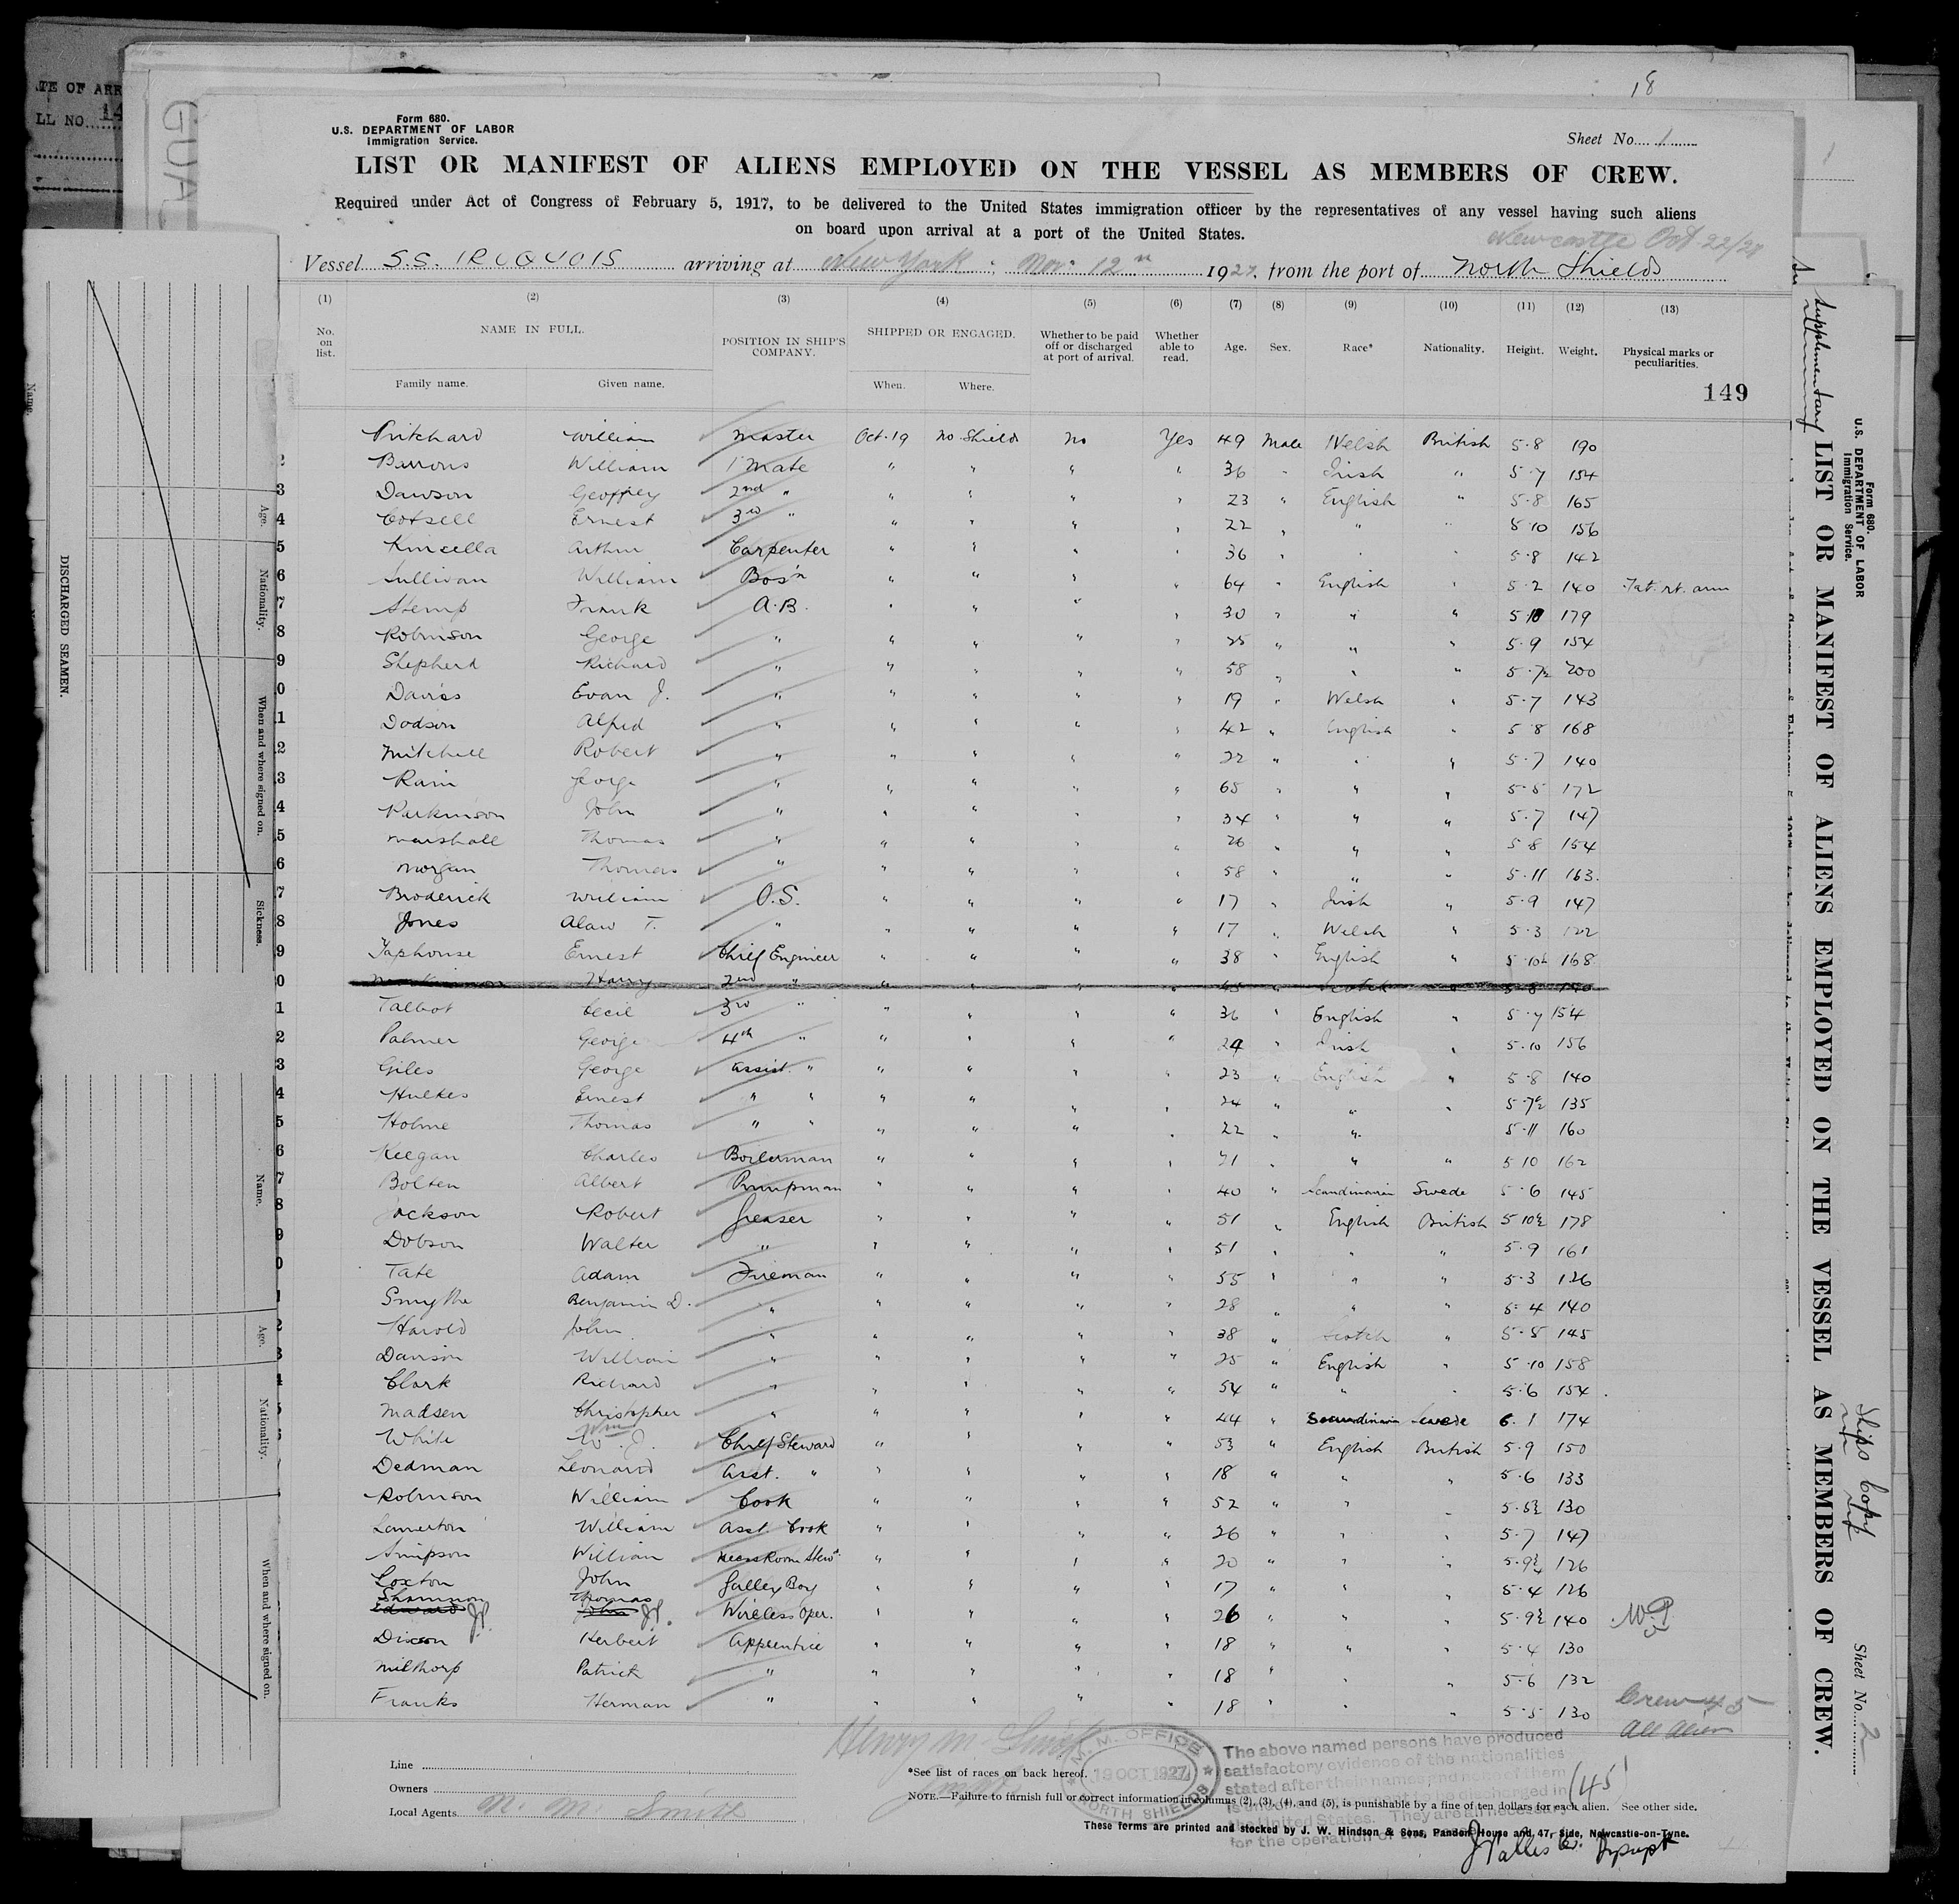 18
Form 680.
U.S. DEPARTMENT OF LABOR
Immigration Service.
Sheet No. 1
LIST OR MANIFEST OF ALIENS EMPLOYED ON THE VESSEL AS MEMBERS OF CREW.
Required under Act of Congress of February 5, 1917, to be delivered to the United States immigration officer by the representatives of any vessel having such aliens
on board upon arrival at a port of the United States.
Newcastle Oct 22/27
Vessel S.S. IROQUOIS arriving at New York Nov. 12th 1927, from the port of North Shields
(1) (2) (3) (4) (5) (6) (7) (8) (9) (10) (11) (12) (13)
No. on list. NAME IN FULL. POSITION IN SHIP'S COMPANY. SHIPPED OR ENGAGED. Whether to be paid off or discharged at port of arrival. Whether able to read. Age. Sex. Race* Nationality. Height. Weight. Physical marks or peculiarities.
Family name. Given name. When. Where.
149
Pritchard William Master Oct. 19 No. Shields No Yes 49 Male Welsh British 5-8 190
2 Barrons William 1 Mate " " " " 36 " Irish " 5-7 154
3 Dawson Geoffrey 2nd " " " " " 23 " English " 5-8 165
4 Cotsell Ernest 3rd " " " " " 22 " " " 5 10 156
5 Kinsella Arthur Carpenter " " " " 36 " " " 5-8 142
6 Sullivan William Bos'n " " " " 64 " English " 5-2 140 Tat. rt. arm
7 Stemp Frank A.B. " " " " 30 " " " 5-10 179
8 Robinson George " " " " " 25 " " " 5-9 154
9 Shepherd Richard " " " " " 58 " " " 5-7½ 200
0 Davies Evan J. " " " " " 19 " Welsh " 5-7 143
1 Dodson Alfred " " " " " 42 " English " 5 8 168
2 Mitchell Robert " " " " " 22 " " " 5-7 140
3 Rain George " " " " " 65 " " " 5-5 172
4 Parkinson John " " " " " 34 " " " 5-7 147
5 Marshall Thomas " " " " " 26 " " " 5 8 154
6 Morgan Thomas " " " " " 58 " " " 5-11 163.
7 Broderick William O.S. " " " " 17 " Irish " 5-9 147
8 Jones Alaw T. " " " " " 17 " Welsh " 5-3 122
9 Taphouse Ernest Chief Engineer " " " " 38 " English " 5-10½ 168
0 Harry 2nd " " " " " 45 " Scotch " 5-8 150
1 Talbot Cecil 3rd " " " " " 36 " English " 5-7 154
2 Palmer George 4th " " " " " 24 " Irish " 5-10 156
3 Giles George Assist. " " " " " 23 " English " 5-8 140
4 Hulkes Ernest " " " " " " 24 " " " 5-7½ 135
5 Holme Thomas " " " " " " 22 " " " 5-11 160
6 Keegan Charles Boilerman " " " " 21 " " " 5 10 162
7 Bolten Albert Pumpman " " " " 40 " Scandinavian Swede 5-6 145
8 Jackson Robert Greaser " " " " 51 " English British 5 10½ 178
9 Dobson Walter " " " " " 51 " " " 5-9 161
0 Tate Adam Fireman " " " " 55 " " " 5-3 126
Smythe Benjamin D. " " " " " 28 " " " 5-4 140
2 Harold John " " " " " 38 " Scotch " 5-8 145
3 Davison William " " " " " 25 " English " 5-10 158
4 Clark Richard " " " " " 54 " " " 5-6 154
Madsen Christopher " " " " " 44 " Scandinavian Swede 6-1 174
White W. J. Wm Chief Steward " " " " 53 " English British 5-9 150
Dedman Leonard Asst. " " " " " 18 " " " 5-6 133
Robinson William Cook " " " " 52 " " " 5-5½ 130
Lamerton William Asst. Cook " " " " 26 " " " 5-7 147
Simpson William Mess Room Stewd. " " " " 20 " " " 5-9½ 126
Loxton John Galley Boy " " " " 17 " " " 5-4 126
Shannon Thomas
Edward JP. John JP. Wireless Oper. " " " " 26 " " " 5-9½ 140
Dixon Herbert Apprentice " " " " 18 " " " 5-4 130
Milthorp Patrick " " " " " 18 " " " 5-6 132
Franks Herman " " " " " 18 " " " 5-5 130
Crew 45
All Alien
Henry M. Smith
Line
Owners
Local Agents M. M. Smith
M. M. OFFICE
19 OCT 1927
NORTH SHIELDS
The above named persons have produced
satisfactory evidence of the nationalities
stated after their names and none of them
is to be discharged in
the United States. They are all necessary
for the operation of
(45)
*See list of races on back hereof.
NOTE.—Failure to furnish full or correct information in columns (2), (3), (4), and (5), is punishable by a fine of ten dollars for each alien. See other side.
These forms are printed and stocked by J. W. Hindson & Sons, Pandon House and 47, Side, Newcastle-on-Tyne.
DISCHARGED SEAMEN.
Name.
Age.
Nationality.
When and where signed on.
Sickness.
Name.
Age.
Nationality.
When and where signed on.
Form 680.
U.S. DEPARTMENT OF LABOR
Immigration Service.
Supplementary LIST OR MANIFEST OF ALIENS EMPLOYED ON THE VESSEL AS MEMBERS OF CREW.
Ships Copy
Sheet No. 2